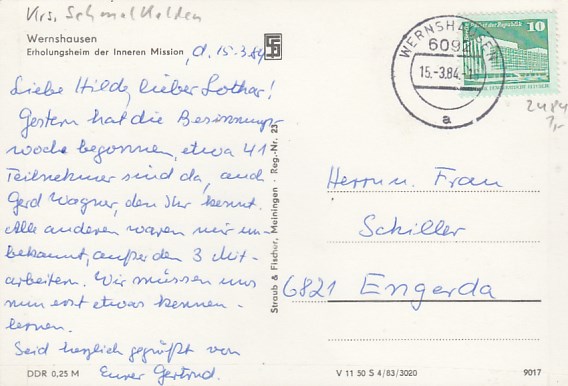 Krs. Schmalkalden
Wernshausen
Erholungsheim der Inneren Mission
, d. 15.3.84
Liebe Hilde, lieber Lothar!
Gestern hat die Besinnungs
woche begonnen, etwa 41
Teilnehmer sind da, auch
Gerd Wagner, den Ihr kennt.
Alle anderen waren mir un-
bekannt, außer den 3 Mit-
arbeitern. Wir müssen uns
nun erst etwas kennen-
lernen.
Seid herzlich gegrüßt von
Eurer Gertrud.
DDR 0,25 M
Straub & Fischer, Meiningen · Reg.-Nr. 23
WERNSHAUSEN
6092
15.-3.84.
a
der Republik
10
2484
7,-
Herrn u. Frau
Schiller
6821 Engerda
V 11 50 S 4/83/3020
9017